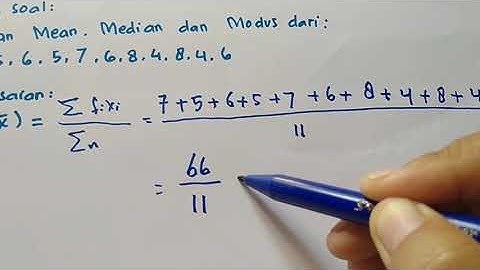 soal:
an Mean. Median dan Modus dari:
5, 6, 5, 7, 6, 8, 4, 8, 4, 6
x̄) = Σ fixi / Σn = 7+5+6+5+7+6+8+4+8+4 / 11
= 66 / 11